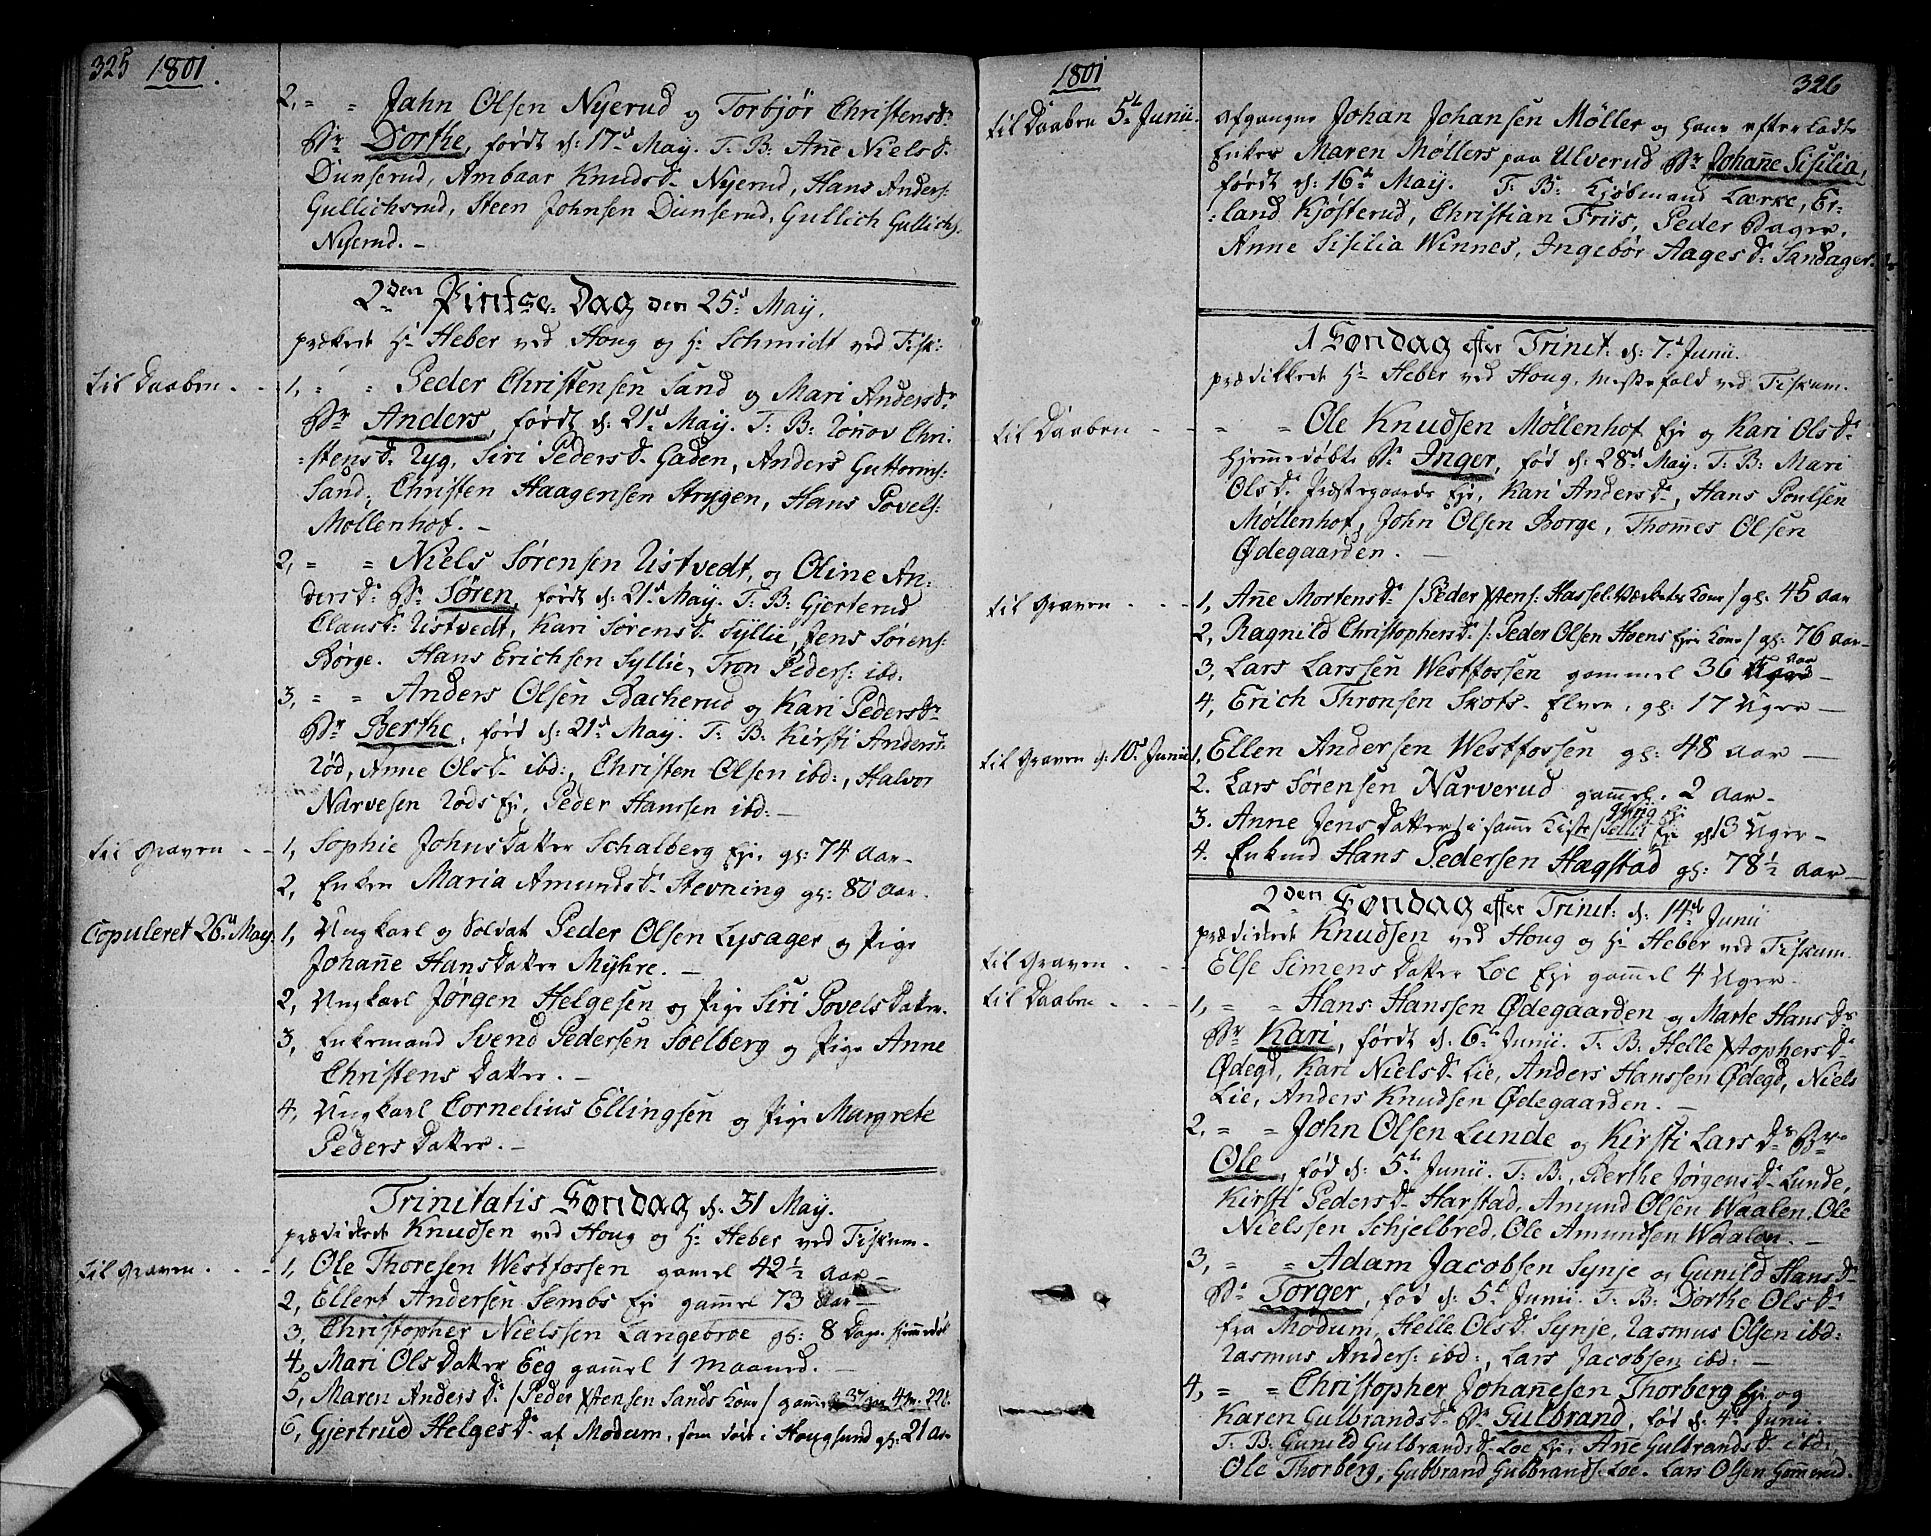 325 1801.
2, " " Jahn Olsen Nyerud og Torbjør Christensd:
Br Dorthe, født d: 17d May. T: B: Anne Nielsd.
Dunserud, Ambaar Knudsd. Nyerud, Hans Anders:
Gullichsrud, Steen Johnsen Dunserud, Gullich Gullichs.
Nyerud. -
2den Pintse-Dag den 25d May.
prækede Hr Heber ved Houg og Hr Schmidt ved Fisk:
til Daaben - 1, " " Peder Christensen Sand og Mari Andersdr
Br Anders, født d: 21d May. T: B: Rønnov Chri-
:stensd. Ryg, Siri Pedersd. Gaden, Anders Guttorms:
Sand, Christen Haagensen Strygen, Hans Povels:
Møllenhof. -
2, " " Niels Sørensen Ustvedt, og Oline An-
dersd: Br Søren, født d: 21d May. T: B: Gjerterud
Clausd: Ustvedt, Kari Sørensd. Syllie, Jens Sørens:
Børge. Hans Erichsen Syllie, Tron Peders: ibd:
3, " " Anders Olsen Bacherud og Kari Pedersdr
Br Berthe, fød d: 21d May. T: B: Kirsti Anders:
Rød, Anne Olsd. ibd:, Christen Olsen ibd:, Halvor
Narvesen Røds Eje, Peder Hansen ibd: -
til Graven - - 1, Sophie Johnsdatter Schalberg Eje, gl: 74 aar -
2, Enken Maria Amundsd. Stevning gl: 80 aar.
Copuleret 26d May: 1, Ungkarl og Soldat Peder Olsen Lysager og Pige
Johanne Hansdatter Myhre. -
2, Ungkarl Jørgen Helgesen og Pige Siri Povelsdatter.
3, Enkemand Svend Pedersen Soelberg og Pige Anne
Christensdatter. -
4, Ungkarl Cornelius Ellingsen og Pige Margrete
Pedersdatter. -
Trinitatis Søndag d: 31 May.
prædikede Knudsen ved Houg og Hr Heber ved Fiskum -
til Graven. - - 1, Ole Thoresen Westfossen gamel 42½ aar -
2, Ellert Andersen Sembs Eje gammel 73 aar -
3, Christopher Nielssen Langebroe gl: 8 Dage hjemmedøbt
4, Mari Olsdatter Eeg gammel 1 Maaned. -
5, Maren Andersd: /Peder Xstensen Sands Kone/ gammel
6, Gjertrud Helgesd: af Modum, som døde i Hougsund gl: 21 Aar
1801 326
til Daaben 5te Junii. afgangne Johan Johansen Møller og hans efterladte
Enke Maren Møllers paa Ulverud Br Johanne Sisilia,
født d: 16de May. T: B: Kjøbmand Lærke, Er-
:land Kjøsterud, Christian Friis, Peder Bager,
Anne Sisilia Winnes, Ingebør Aagesd: Sandager.
1 Søndag efter Trinit: d: 7d Junii.
prædikkede Hr Heber ved Houg, Messefald ved Fiskum.
til Daaben - - " " Ole Knudsen Møllenhof Eje og Kari Olsd:
hjemmedøbte Br Inger, fød d: 28d May. T: B: Mari
Olsd: Præstegaards Eje, Kari Andersd., Hans Poulsen
Møllenhof, John Olsen Borge, Thommes Olsen
Ødegaarden. -
til Graven - - - 1, Anne Mortensd: /Peder Xstens: Hassel-Værkets Kone/ gl: 45 aar
2, Ragnild Christophersd: /: Peder Olsen Hoens Eje Kone/ gl: 76 aar -
3, Lars Larssen Westfossen gammel 36 Aar -
4, Erich Thronsen Skots-Elven, gl: 17 Uger -
til Graven d: 10d Junii 1, Ellen Andersen Westfossen gl: 48 aar -
2. Lars Sørensen Narverud gammel 2 aar -
3. Anne Jensdatter /i samme Kiste/ Eje gl: 3 Uger -
4. Enkemd Hans Pedersen Hægstad gl: 78½ aar -
2den Søndag efter Trinit: d: 14de Junii
prædikede Knudsen ved Houg og Hr Heber ved Fiskum.
til Graven - - - Else Simensdatter Loe Eje gammel 4 Uger.
til Daabn - - - 1, " " Hans Hanssen Ødegaarden og Marte Hansdr
Br Kari, født d: 6te Junii. T: B. Helle Xstophersd:
Ødegd, Kari Nielsd. Lie, Anders Hanssen Ødegd, Niels
Lie, Anders Knudsen Ødegaarden. -
2, " " John Olsen Lunde og Kirsti Larsdr Br
Ole, fød d: 5te Junii. T: B:, Berthe Jørgensd. Lunde,
Kirsti Pedersd. Harstad, Amund Olsen Waalen, Ole
Nielssen Schjelbred, Ole Amundsen Waalen. -
3, " " Adam Jacobsen Synje og Gunild Hansd.
Br Torger, fød d: 5d Junii. T: B: Dorthe Olsd:
fra Modum, Helle Olsd. Synje, Rasmus Olsen ibd:
Rasmus Anders: ibd:, Lars Jacobsen ibd: -
4, " " Christopher Johannesen Thorberg Eje og
Karen Gulbrandsd. Br Gulbrand, fød d: 4d Junii.
T: B: Gunild Gulbrandsd. Loe Eje, Anne Gulbrandsd. ibd:,
Ole Thorberg, Gulbrand Gulbrands: Loe. Lars Olsen Gommerud.